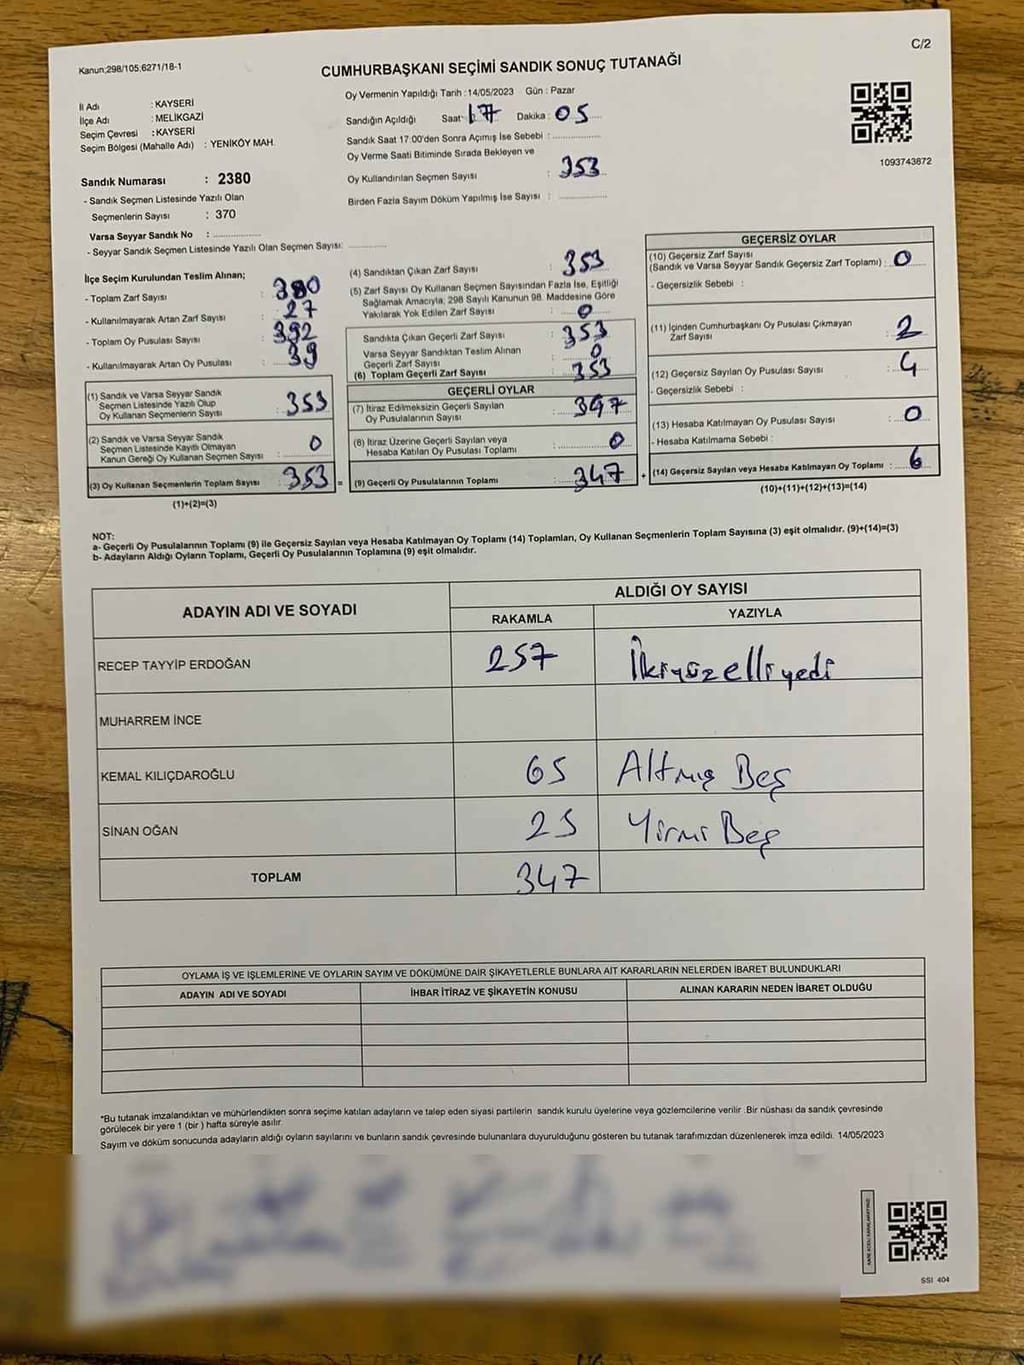 C/2
Kanun;298/105;6271/18-1
CUMHURBAŞKANI SEÇİMİ SANDIK SONUÇ TUTANAĞI
İl Adı : KAYSERİ
İlçe Adı : MELİKGAZİ
Seçim Çevresi : KAYSERİ
Seçim Bölgesi (Mahalle Adı) : YENİKÖY MAH.
Sandık Numarası : 2380
- Sandık Seçmen Listesinde Yazılı Olan
Seçmenlerin Sayısı : 370
Varsa Seyyar Sandık No :
- Seyyar Sandık Seçmen Listesinde Yazılı Olan Seçmen Sayısı:
Oy Vermenin Yapıldığı Tarih : 14/05/2023 Gün : Pazar
Sandığın Açıldığı Saat : 17 Dakika : 05
Sandık Saat 17:00'den Sonra Açımış İse Sebebi :
Oy Verme Saati Bitiminde Sırada Bekleyen ve
Oy Kullandırılan Seçmen Sayısı : 353
Birden Fazla Sayım Döküm Yapılmış İse Sayısı :
1093743872
İlçe Seçim Kurulundan Teslim Alınan;
- Toplam Zarf Sayısı : 380
- Kullanılmayarak Artan Zarf Sayısı : 27
- Toplam Oy Pusulası Sayısı : 392
- Kullanılmayarak Artan Oy Pusulası : 39
(1) Sandık ve Varsa Seyyar Sandık
Seçmen Listesinde Yazılı Olup
Oy Kullanan Seçmenlerin Sayısı : 353
(2) Sandık ve Varsa Seyyar Sandık
Seçmen Listesinde Kayıtlı Olmayan
Kanun Gereği Oy Kullanan Seçmen Sayısı : 0
(3) Oy Kullanan Seçmenlerin Toplam Sayısı : 353 =
(1)+(2)=(3)
(4) Sandıktan Çıkan Zarf Sayısı : 353
(5) Zarf Sayısı Oy Kullanan Seçmen Sayısından Fazla İse, Eşitliği
Sağlamak Amacıyla, 298 Sayılı Kanunun 98. Maddesine Göre
Yakılarak Yok Edilen Zarf Sayısı : 0
Sandıkta Çıkan Geçerli Zarf Sayısı : 353
Varsa Seyyar Sandıktan Teslim Alınan
Geçerli Zarf Sayısı : 0
(6) Toplam Geçerli Zarf Sayısı : 353
GEÇERLİ OYLAR
(7) İtiraz Edilmeksizin Geçerli Sayılan
Oy Pusulalarının Sayısı : 347
(8) İtiraz Üzerine Geçerli Sayılan veya
Hesaba Katılan Oy Pusulası Toplamı : 0
(9) Geçerli Oy Pusulalarının Toplamı : 347 +
GEÇERSİZ OYLAR
(10) Geçersiz Zarf Sayısı
(Sandık ve Varsa Seyyar Sandık Geçersiz Zarf Toplamı) : 0
- Geçersizlik Sebebi :
(11) İçinden Cumhurbaşkanı Oy Pusulası Çıkmayan
Zarf Sayısı : 2
(12) Geçersiz Sayılan Oy Pusulası Sayısı : 4
- Geçersizlik Sebebi :
(13) Hesaba Katılmayan Oy Pusulası Sayısı : 0
- Hesaba Katılmama Sebebi :
(14) Geçersiz Sayılan veya Hesaba Katılmayan Oy Toplamı : 6
(10)+(11)+(12)+(13)=(14)
NOT:
a- Geçerli Oy Pusulalarının Toplamı (9) ile Geçersiz Sayılan veya Hesaba Katılmayan Oy Toplamı (14) Toplamları, Oy Kullanan Seçmenlerin Toplam Sayısına (3) eşit olmalıdır. (9)+(14)=(3)
b- Adayların Aldığı Oyların Toplamı, Geçerli Oy Pusulalarının Toplamına (9) eşit olmalıdır.
ADAYIN ADI VE SOYADI
ALDIĞI OY SAYISI
RAKAMLA YAZIYLA
RECEP TAYYİP ERDOĞAN 257 İkiyüzelliyedi
MUHARREM İNCE
KEMAL KILIÇDAROĞLU 65 Altmış Beş
SİNAN OĞAN 25 Yirmi Beş
TOPLAM 347
OYLAMA İŞ VE İŞLEMLERİNE VE OYLARIN SAYIM VE DÖKÜMÜNE DAİR ŞİKAYETLERLE BUNLARA AİT KARARLARIN NELERDEN İBARET BULUNDUKLARI
ADAYIN ADI VE SOYADI İHBAR İTİRAZ VE ŞİKAYETİN KONUSU ALINAN KARARIN NEDEN İBARET OLDUĞU
*Bu tutanak imzalandıktan ve mühürlendikten sonra seçime katılan adayların ve talep eden siyasi partilerin sandık kurulu üyelerine veya gözlemcilerine verilir .Bir nüshası da sandık çevresinde
görülecek bir yere 1 (bir ) hafta süreyle asılır.
Sayım ve döküm sonucunda adayların aldığı oyların sayılarını ve bunların sandık çevresinde bulunanlara duyurulduğunu gösteren bu tutanak tarafımızdan düzenlenerek imza edildi. 14/05/2023
SSI 404